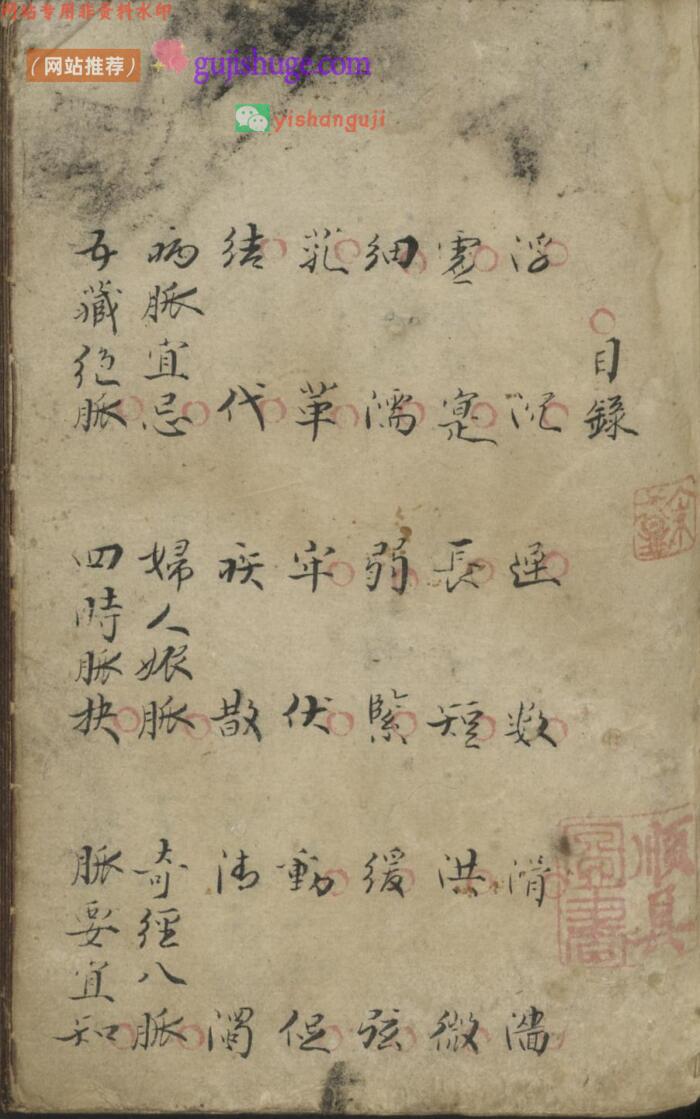 网站专用非资料水印
（网站推荐）
gujishuge.com
yishanguji
目錄
浮 沉 遲 数 滑 濇
虛 實 長 短 洪 微
細 濡 弱 緊 緩 弦
芤 革 牢 伏 動 促
結 代 疾 散 清 濁
病脈宜忌 婦人娠脈 奇經八脈
五藏絕脈 四時脈抉 脈要宜知
順具圖書